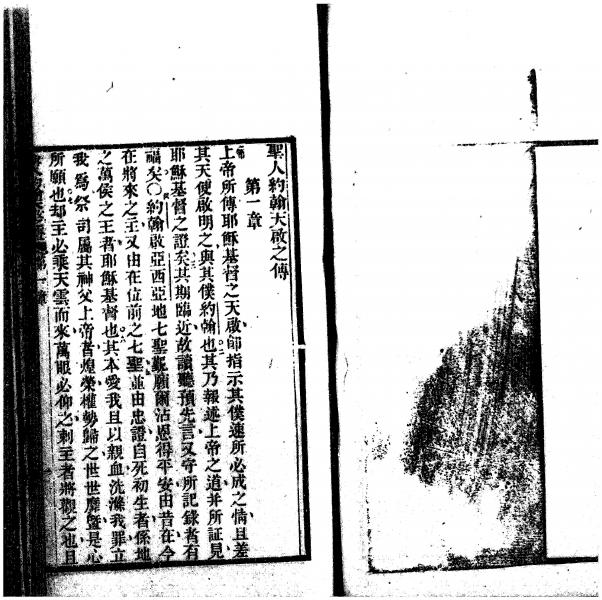 聖人約翰天啟之傳
第一章
上帝所傳耶穌基督之天啟師指示其僕速所必成之情且差
其天使啟明之與其僕約翰也其乃報述上帝之道并所証見
耶穌基督之證矣其期臨近故讀聽預先言又守所記錄者有
福矣〇約翰啟亞西亞地七聖會願爾沾恩得平安由昔在今
在將來之主又由在位前之七聖並由忠證自死初生者係地
之萬侯之王者耶穌基督也其本愛我且以親血洗滌我罪立
我為祭司屬其神父上帝者煌榮權勢歸之世世靡暨是心
所願也却主必乘天雲而來萬眼必仰之刺王者將觀之也且